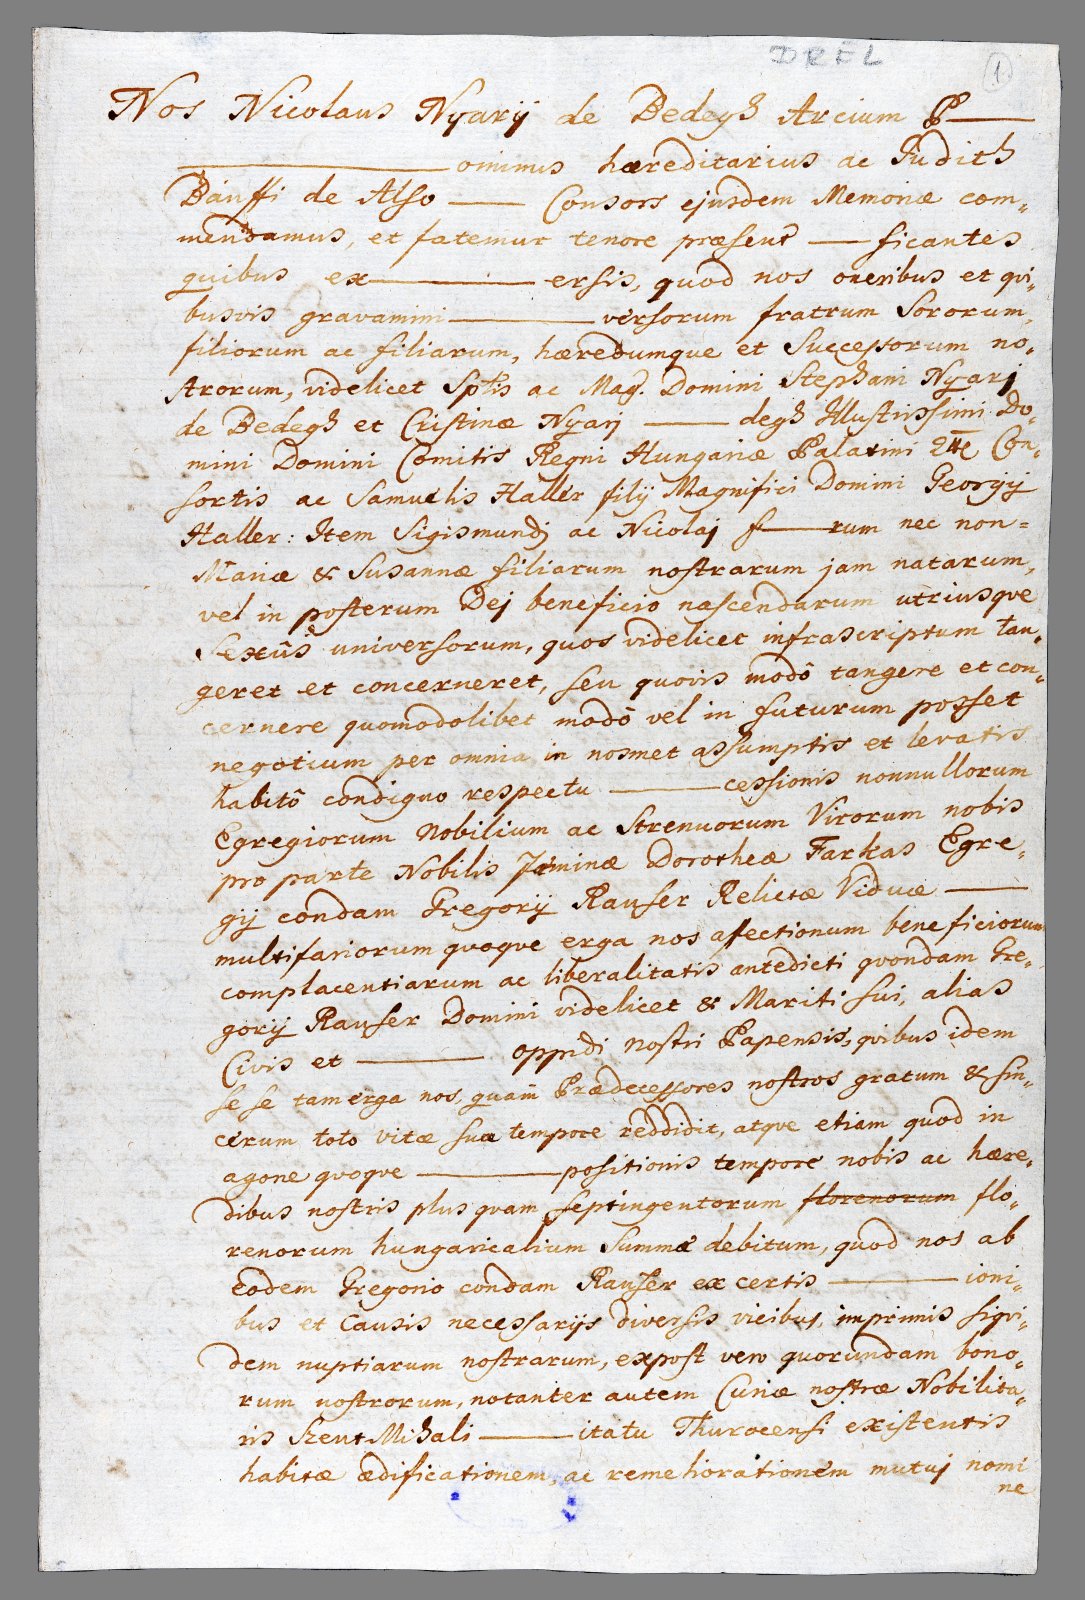 DREL
1
Nos Nicolaus Nyarÿ de Bedegh Arcium P———
——— ominus hæreditarius ac Judith
Bánffi de Also —— Consors ejusdem Memoriæ com„
mendamus, et fatemur tenore præsent —— ficantes
quibus ex——— ersis, quod nos oneribus et qvi„
busvis gravamini——— versorum fratrum Sororum,
filiorum ac filiarum, hæredumque et Successorum no„
strorum, videlicet Sptis ac Mag. Domini Stephani Nyarj
de Bedegh et Cristinæ Nyarj —— degh Illustrissimi Do„
mini Domini Comitis Regni Hungariæ Palatini Con„
sortis ac Samuelis Haller filÿ Magnifici Domini Georgÿ
Haller: Item Sigismundj ac Nicolaj f——rum nec non=
Mariæ & Susannæ filiarum nostrarum jam natarum,
vel in posterum Dej beneficio nascendarum utriusqve
Sexûs universorum, quos videlicet infrascriptum tan„
geret et concerneret, seu quovis modô tangere et con„
cernere quomodolibet modô vel in futurum posset
negotium per omnia in nosmet assumptis et levatis
habitô condigno respectu ——— cessionis nonnullorum
Egregiorum Nobilium ac Strenuorum Virorum nobis
pro parte Nobilis Fæminæ Dorotheæ Farkas Egre„
gÿ condam Gregorÿ Rauser Relictæ Viduæ ——
multifariorum quoqve erga nos afectionum beneficiorum
complacentiarum ac liberalitatis antedicti qvondam Gre„
gorÿ Rauser Domini videlicet & Mariti sui, alias
Civis et ——— oppidi nostri Papensis, qvibus idem
se se tam erga nos, quam Prædecessores nostros gratum & sin„
cerum toto vitæ suæ tempore reddidit, atqve etiam quod in
agone qvoqve ——— positionis tempore nobis ac hære„
dibus nostris plus qvam septingentorum florenorum flo„
renorum hungaricalium Summæ debitum, quod nos ab
eodem Gregorio condam Rauser ex certis ——— ioni„
bus et Causis necessarÿs diversis vicibus, imprimis siqvi„
dem nuptiarum nostrarum, expost vero quorundam bono„
rum nostrorum, notanter autem Curiæ nostræ Nobilita„
ris Szent Mihali ——— itatu Thurocensi existentis
habitæ ædificationem, ac remeliorationem mutuj nomi
ne